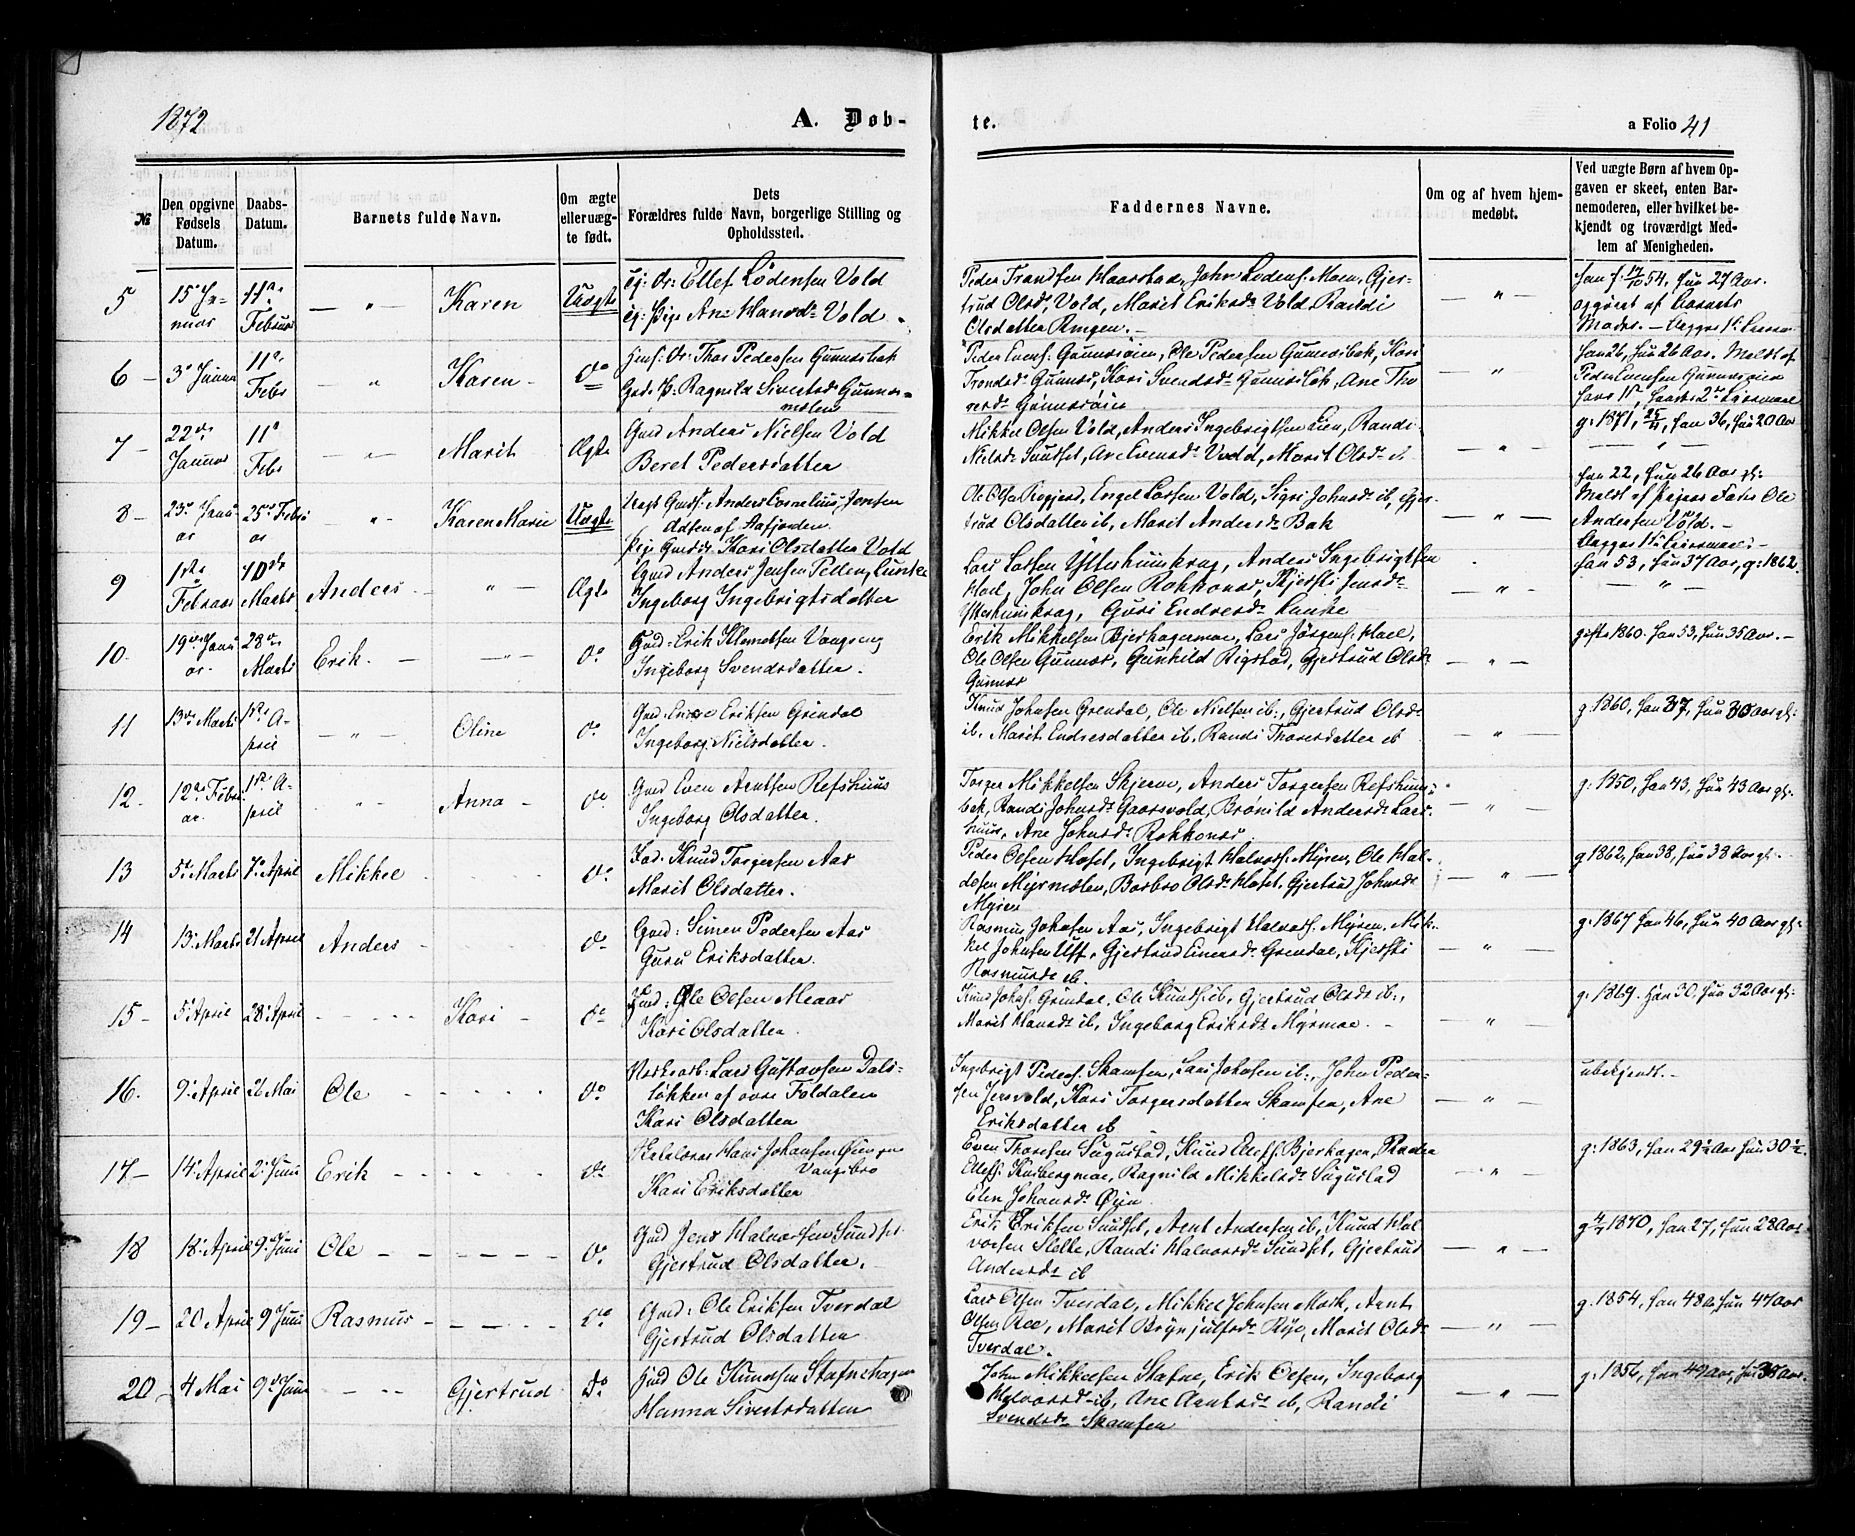 1872
A. Døb-
te.
a Folio 41
№
Den opgivne Fødsels Datum.
Daabs-Datum.
Barnets fulde Navn.
Om ægte eller uæg-te født.
Dets Forældres fulde Navn, borgerlige Stilling og Opholdssted.
Faddernes Navne.
Om og af hvem hjem-medøbt.
Ved uægte Børn af hvem Op-gaven er skeet, enten Bar-nemoderen, eller hvilket be-kjendt og troværdigt Med-lem af Menigheden.
5 15 Ja- 11te Karen Uægte
nuar Februar
Ellef Lodensen Vold
Vold
Peder Trondsen Haarstad, John Lodens. Moen, Gjer-
trud Olsdr Vold, Marit Eriksdr Vold, Randi
Olsdatter Ringen.
Han f. 54, Hun 27 Aar.
opgivet af Barnets
Moder.
6 3 Januar 11te Febr Karen do
Thor Pedersen Gunnesbak
Ragnild Sivertsdr Gunnes-
mælen
Peder Evens. Gunnesøien, Ole Pedersen Gunnesbak, Kari
Trondsdr Gunnes, Kari Svendsdr Gunnesbak, Ane Tho
resdr Gunnesøien
Han 26, Hun 26 Aar. Meldt af
Peder Evensen Gunnesøien
7 22de Januar 11te Febr Marit Ægte
Gmd Anders Nielsen Vold
Beret Pedersdatter
Mikkel Olsen Vold, Anders Ingebrigtsen Lien, Randi
Nielsdr Sundset, Ane Evensdr Vold, Marit Olsdr ib
g. 1871, 25/11, Han 36, Hun 20 Aar
8 23de Janu- 25de Febr Karen Marie Uægte
ar
Anders Cornelius Jensen
af Aafjorden
Kari Olsdatter Vold
Ole Olsen Rogjerd, Engel Larsen Vold, Sigri Johnsdr ib, Gjer-
trud Olsdatter ib, Marit Andersdr Bak
Han 22, Hun 26 Aar gl:
Meldt af Pigens Fader Ole
Andersen Vold.
9 1ste Februar 10de Marts Anders Ægte
Gmd Anders Jensen Lunke
Ingeborg Ingebrigtsdatter
Lars Larsen Ytterhuinkrag, Anders Ingebrigtsen
Hoel, John Olsen Rokkones, Kjersti Jensdr
Ytterhuinkrag, Guri Endresdr Lunke
Han 53, Hun 37 Aar, g: 1862.
10. 19de Janu- 28de Marts Erik. do
ar
Gmd: Erik Klemetsen Vangseng
Ingeborg Svendsdatter.
Erik Mikkelsen Bjerkagermoe, Lars Jørgens. Hoel,
Ole Olsen Gunnes, Gunhild Rigstad, Gjertrud Olsdr
Gunnes
gifte 1860. Han 53, Hun 35 Aar.
11 13de Marts 1ste A-
pril Oline do
Eriksen Grindal
Ingeborg Nielsdatter.
Knud Johnsen Grendal, Ole Nielsen ib:, Gjertrud Olsdr
ib, Marit Endresdatter ib, Randi Thoresdatter ib
g: 1860, Han 37, Hun 30 Aar gl:
12 12te Febru- 1ste A-
ar. pril Anna do
Gmd Even Arntsen Refshuus
Ingeborg Olsdatter.
Torger Mikkelsen Skjerve, Anders Torgersen Refshuus-
bak, Randi Johnsdr Gaarsvold, Brønild Andersdr Lars
huus, Ane Johnsdr Rokkones
g: 1850, Han 43, Hun 43 Aar gl.
13 5te Marts 7de April Mikkel do
Knud Torgersen Aas
Marit Olsdatter.
Peder Olsen Hoset, Ingebrigt Halvors. Myren, Ole Hal-
dosen Myrmælen, Barbro Olsdr Hoset, Gjertrud Johnsdr
Myren
g 1862, Han 38, Hun 38 Aar gl.
14 13 Marts 21 April Anders do
Gmd: Simen Pedersen Aas
Guru Eriksdatter.
Rasmus Johnsen Aas, Ingebrigt Halvors. Myren, Mik-
kel Johnsen Uff, Gjertrud Einersdr Grendal, Kjersti
Rasmusdr ib.
g: 1867 Han 46, Hun 40 Aar gl:
15 5te April 28 April Kari do
Ole Olsen Meaas
Kari Olsdatter.
Knud Johns. Grindal, Ole Knuds. ib, Gjertrud Olsdr ib:,
Marit Hansdr ib, Ingeborg Eriksdr Myrmoe.
g: 1869. Han 30, Hun 32 Aar gl:
16. 9de April 26 Mai Ole do
Lars Gustavsen Dals-
løkken af øvre Foldalen
Kari Olsdatter
Ingebrigt Peders. Skamfer, Lars Johnsen ib:, John Peder-
sen Jensvold, Kari Torgersdatter Skamfer, Ane
Eriksdatter ib
ubekjendt.
17 14 April 2 Juni Erik do
Hans Johansen Øien
Vangsbro
Kari Eriksdatter
Even Thoresen Sugustad, Knud Ellefs. Bjerkagen, Peder
Ellefs. Kinbergmoe, Ragnild Mikkelsdr Sugustad
Elen Johansdr Øien
g: 1863, Han 29½ Aar Hun 30½.
18 18 April 9 Juni Ole do
Gmd Jens Halvorsen Sundset
Gjertrud Olsdatter.
Erik Eriksen Sundset, Arnt Andersen ib, Knud Hal
vorsen Slette, Randi Halvorsdr Sundset, Gjertrud
Andersdr ib
g 1870, Han 27, Hun 28 Aar
19 20 April 9 Juni Rasmus do
Gmd: Ole Eriksen Tverdal
Gjertrud Olsdatter
Lars Olsen Tverdal, Mikkel Johnsen Mærk, Arnt
Olsen Ree, Marit Brynjulfsdr Rye, Marit Olsdr
Tverdal.
g: 1854, Han 48 a, Hun 47 Aar
20 4 Mai 9de Juni Gjertrud Do
Ole Knudsen Stafnehagen
Hanna Sivertsdatter
John Mikkelsen Stafne, Erik Olsen, Ingeborg
Halvorsdr ib, Ane Arntsdr ib, Randi
Svendsdr Skamfer
g: 1856, Han 49 Aar, Hun 38 Aar.